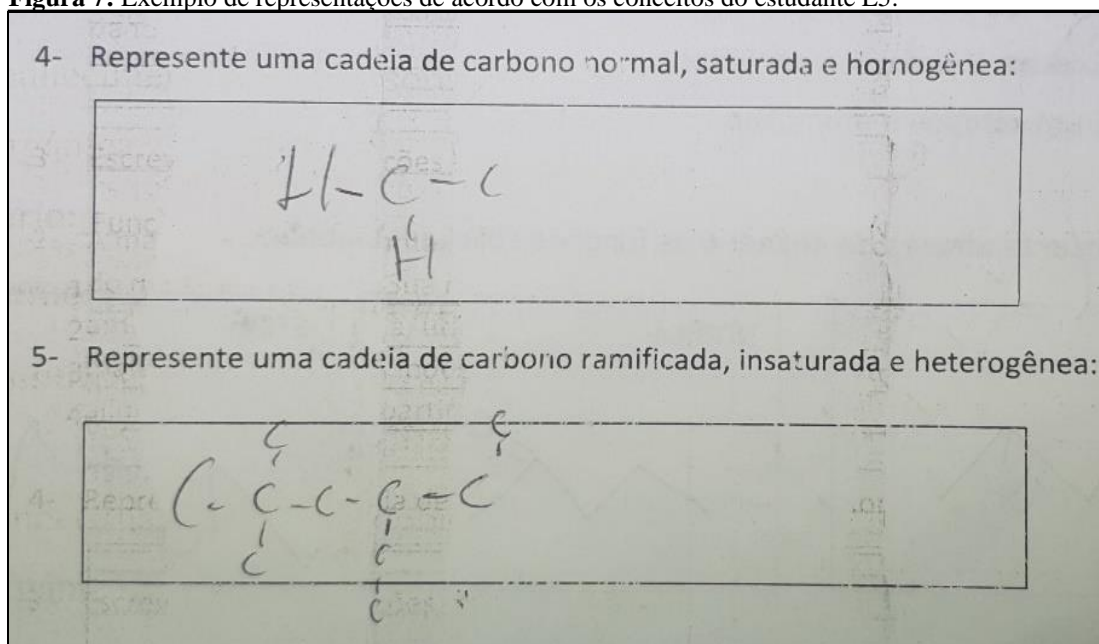 Figura 7. Exemplo de representações de acordo com os conceitos do estudante E5.
4- Represente uma cadeia de carbono normal, saturada e homogênea:
H - C - C
H
5- Represente uma cadeia de carbono ramificada, insaturada e heterogênea:
C C
C - C - C - C - C
C C
C